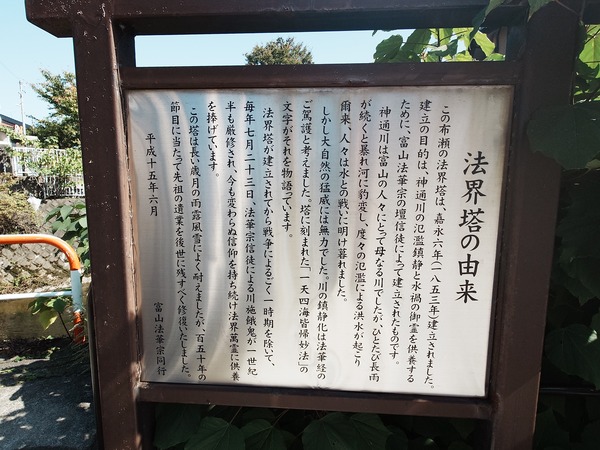 法界塔の由来
この布瀬の法界塔は、嘉永六年(一八五三年)建立されました。
建立の目的は、神通川の氾濫鎮静と水禍の御霊を供養する
ために、富山法華宗の壇信徒によって建立されたものです。
神通川は富山の人々にとって母なる川でしたが、ひとたび長雨
が続くと暴れ河に豹変し、度々の氾濫による洪水が起こり
爾来、人々は水との戦いに明け暮れました。
しかし大自然の猛威には無力でした。川の鎮静化は法華経の
ご駕護と考えました。塔に刻まれた「一天四海皆帰妙法」の
文字がそれを物語っています。
法界塔が建立されてから戦争によるごく一時期を除いて、
毎年七月二十三日、法華宗信徒による川施餓鬼が一世紀
半も厳修され、今も変わらぬ信仰を持ち続け法界萬霊に供養
を捧げています。
この塔は長い歳月の雨露風雪によく耐えましたが、百五十年の
節目に当たって先祖の遺業を後世に残すべく修復いたしました。
平成十五年六月
富山法華宗同行